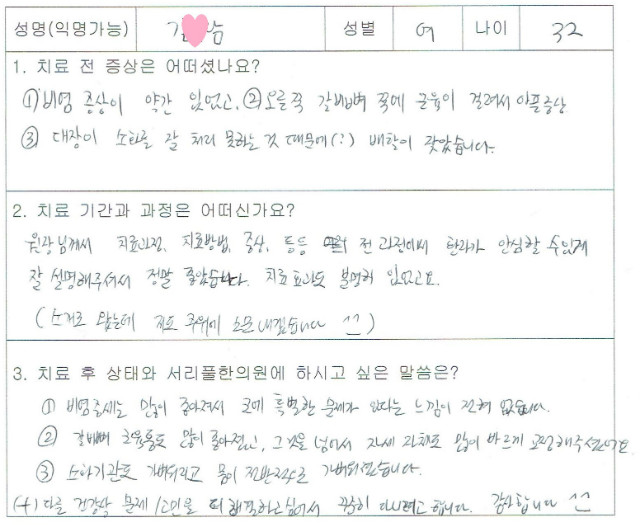 성명(익명가능) 김 남 성별 여 나이 32
1. 치료 전 증상은 어떠셨나요?
①비염 증상이 약간 있었고, ②오른쪽 갈비뼈 쪽에 근육이 걸려서 아픈증상
③ 대장이 소화를 잘 처리 못하는 것 때문에(?) 배탈이 잦았습니다.
2. 치료 기간과 과정은 어떠신가요?
원장님께서 치료과정, 치료방법, 증상, 등등 전 과정에서 환자가 안심할 수있게
잘 설명해주셔서 정말 좋았습니다. 치료효과도 분명히 있었고요.
(소개로 왔는데 저도 주위에 소문내겠습니다 ^^)
3. 치료 후 상태와 서리풀한의원에 하시고 싶은 말씀은?
① 비염증세는 많이 좋아져서 코에 특별한 문제가 있다는 느낌이 전혀 없습니다.
② 갈비뼈 근육통도 많이 좋아졌고, 그것을 넘어서 자세 자체도 많이 바르게 교정해주셨어요
③ 소화기관도 가벼워지고 몸이 전반적으로 가벼워졌습니다.
(+) 다른 건강상 문제/고민을 더 해결하고싶어서 꾸준히 다니려고 합니다. 감사합니다 ^^